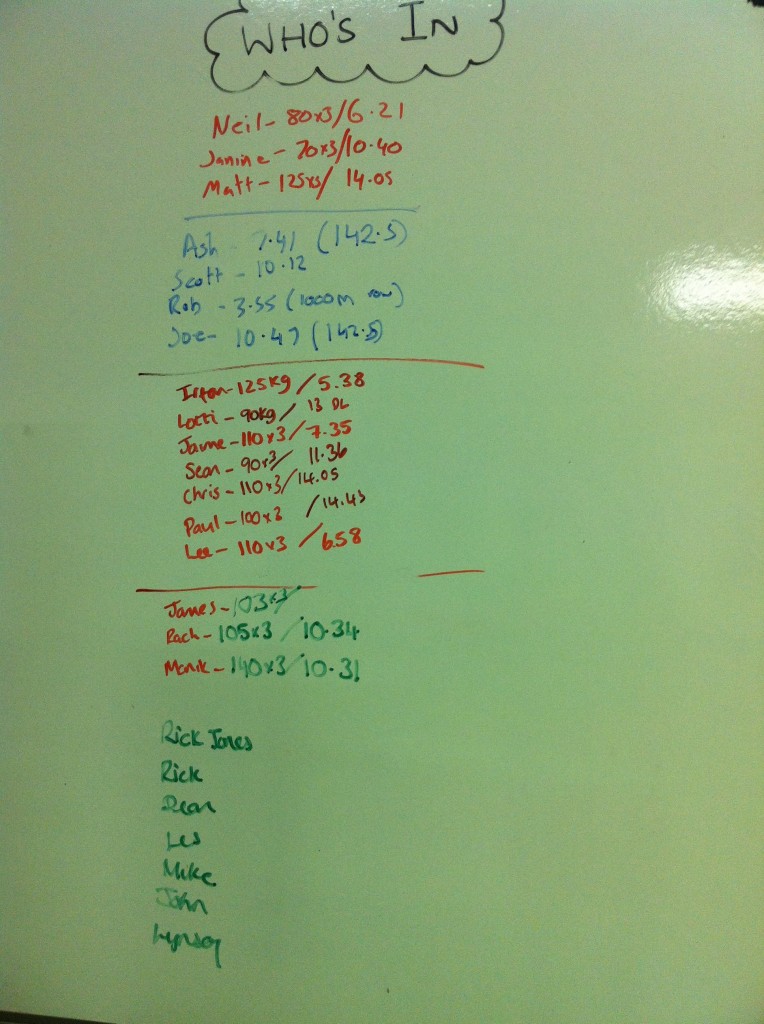 WHO'S IN
Neil - 80x3/6.21
Janine - 70x3/10.40
Matt - 125x3/ 14.05
Ash - 7.41 (142.5)
Scott - 10.12
Rob - 3.55 (1000m row)
Joe - 10.47 (142.5)
125kg / 5.38
Lotti - 90kg / 13 DL
Jayne - 110x3 / 7.35
Sean - 90x3/ 11.36
Chris - 110x3/14.05
Paul - 100x3 /14.43
Lee - 110x3 / 6.58
James - 103x3/
Rach - 105x3 / 10.34
140x3/10.31
Rick Jones
Rick
Dean
Les
Mike
John
Lynsey